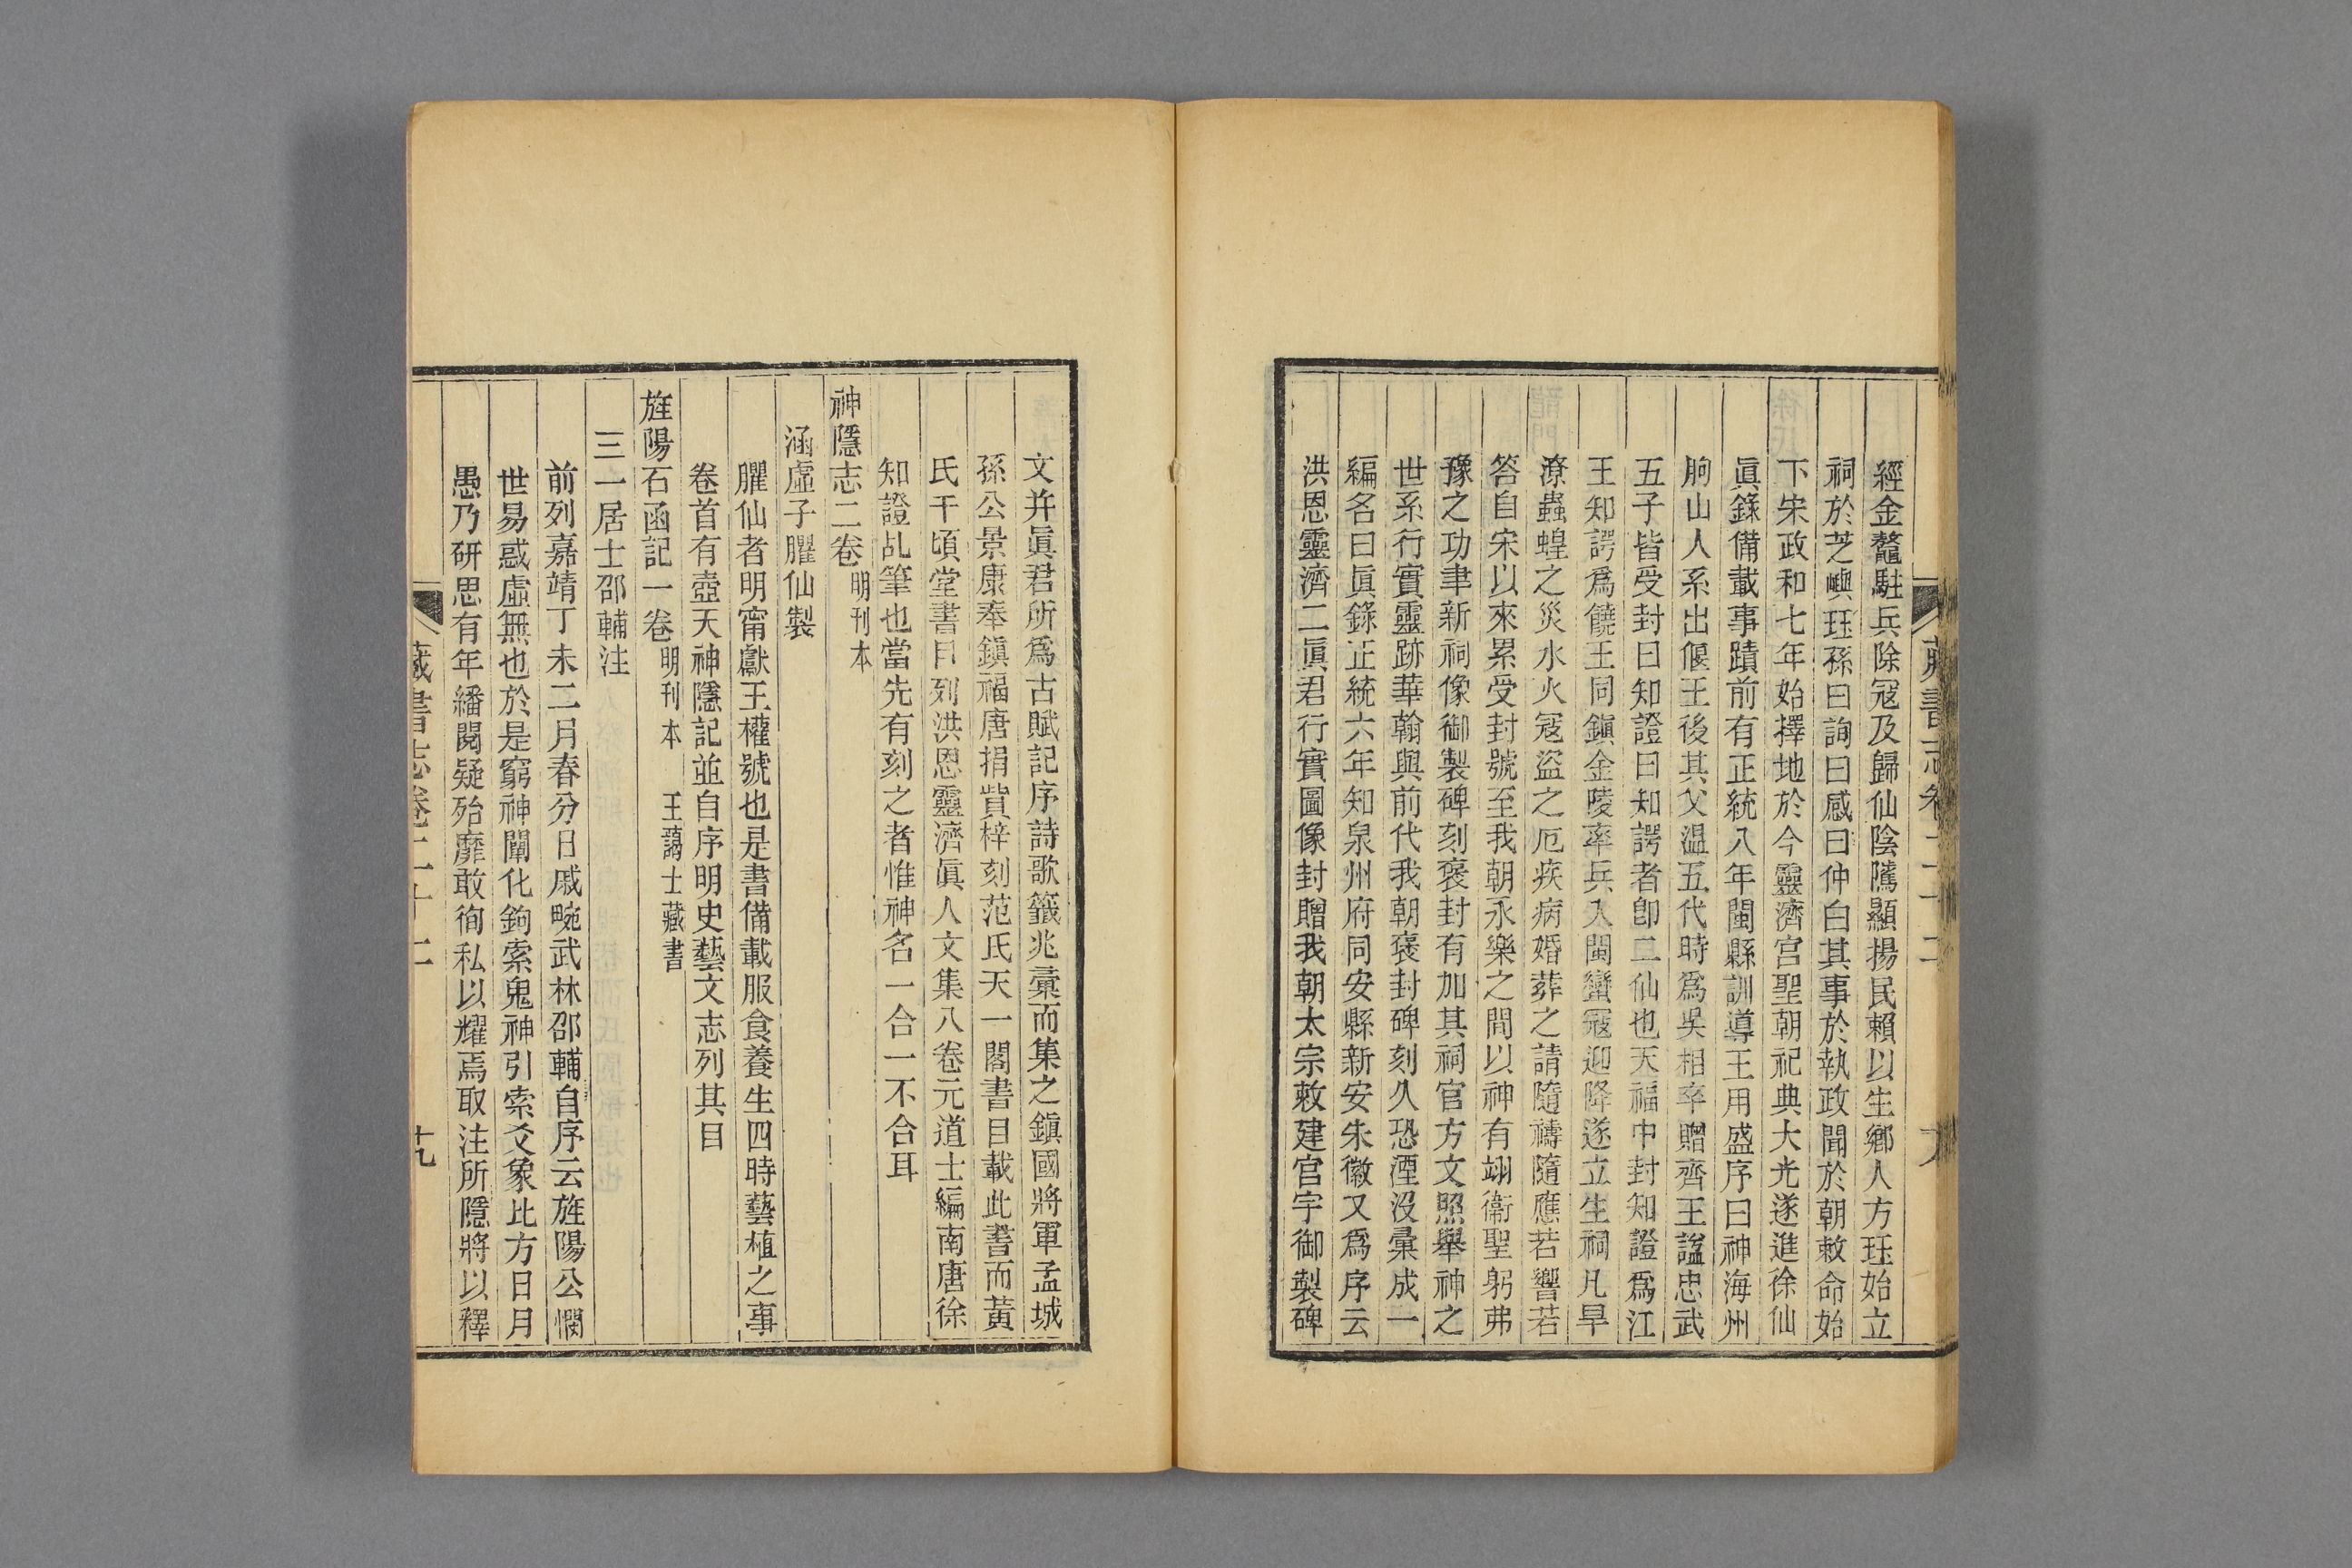 藏書志卷二十二
經金鼇駐兵除寇及歸仙陰隲顯揚民賴以生鄉人方珏始立
祠於芝嶼珏孫曰詢曰感曰仲白其事於執政聞於朝敕命始
下宋政和七年始擇地於今靈濟宫聖朝祀典大光遂進徐仙
眞錄備載事蹟前有正統八年閩縣訓導王用盛序曰神海州
朐山人系出偃王後其父温五代時爲吳相卒贈齊王諡忠武
五子皆受封曰知證曰知諤者卽二仙也天福中封知證爲江
王知諤爲饒王同鎭金陵率兵入閩蠻寇迎降遂立生祠凡旱
潦蟲蝗之災水火寇盜之厄疾病婚葬之請隨禱隨應若響若
答自宋以來累受封號至我朝永樂之間以神有翊衞聖躬弗
豫之功聿新祠像御製碑刻褒封有加其祠官方文照舉神之
世系行實靈跡華翰與前代我朝褒封碑刻久恐湮沒彙成一
編名曰眞錄正統六年知泉州府同安縣新安朱徽又爲序云
洪恩靈濟二眞君行實圖像封贈我朝太宗敕建官宇御製碑
文并眞君所爲古賦記序詩歌籤兆彙而集之鎭國將軍孟城
孫公景康奉鎭福唐捐貲梓刻范氏天一閣書目載此書而黃
氏千頃堂書目列洪恩靈濟眞人文集八卷元道士編南唐徐
知證乩筆也當先有刻之者惟神名一合一不合耳
神隱志二卷 明刊本
涵虛子臞仙製
臞仙者明甯獻王權號也是書備載服食養生四時藝植之事
卷首有壺天神隱記並自序明史藝文志列其目
旌陽石函記一卷 明刊本 王藹士藏書
三一居士邵輔注
前列嘉靖丁未二月春分日戚畹武林邵輔自序云旌陽公憫
世易惑虛無也於是窮神闡化鉤索鬼神引索爻象比方日月
愚乃研思有年繙閱疑殆靡敢徇私以耀焉取注所隱將以釋
藏書志卷二十二
十九